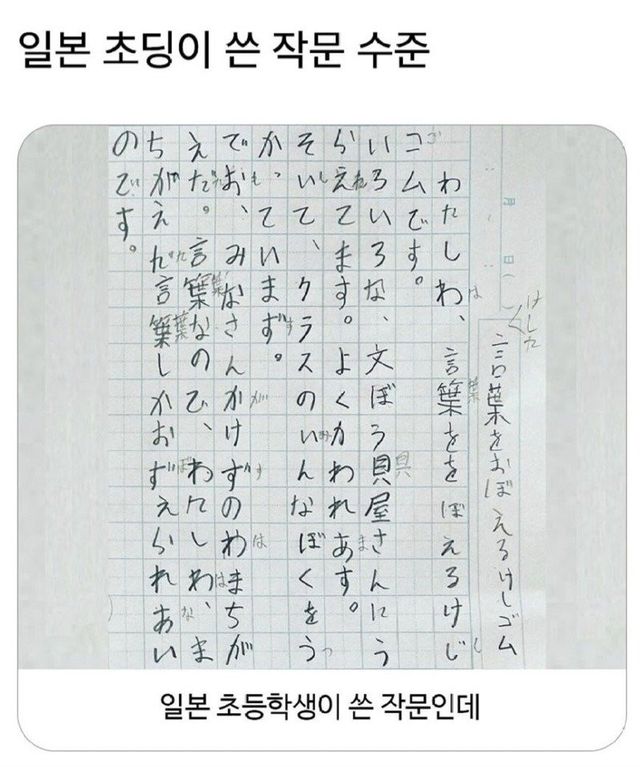 일본 초딩이 쓴 작문 수준
月 日( )
言葉をおぼえるけしゴム
わたしわ、言葉ををぼえるけじ
コムです。
いろいろな、文ぼう貝屋さんにう
らえてます。よくかわれあす。
そいて、クラスのいんなぼくをう
か、ていまず。
でお、みなさんかけずのわまちが
えだ。言葉なのひ、わたしわ、ま
ちがえだ言葉しかおずえられあい
のです。
일본 초등학생이 쓴 작문인데